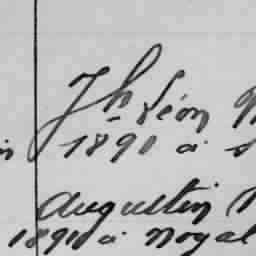 Jh Léon
1890 à
Augustin
1890 à Noyal